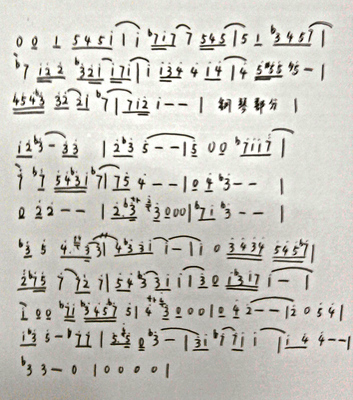 0 0 1 5 4 5 i | i ♭7 i 7 7 5 4 5 | 5 1 ♭3 4 5 7 |
♭7 i 2 2 ♭3 2 i i 7 i | i i 3 4 4 i 4 | 4 5 5 5 - |
4 5 4 3 3 2 2 i ♭7 | 7 i 2 i - - | 钢琴部分 |
i 2 ♭3 - 3 3 | 2 ♭3 5 - - | 5 0 0 ♭7 i i 7 |
7 ♭7 5 4 3 i ♭7 | 7 5 4 - - | 0 4 ♭3 - - |
0 2 2 - - | 2 3 3 0 0 0 | ♭7 i ♭3 - - |
♭3 5 4 5 3 | 4 3 3 i i - | i 0 3 4 3 4 5 4 5 ♭7 |
2 ♭7 5 7 7 2 7 | 5 4 ♭3 3 i i | 3 0 i ♭3 i 7 i - |
i 0 0 ♭7 i ♭3 4 5 ♭7 5 | 4 3 0 0 0 | 0 4 2 - - | 2 0 5 4 |
i ♭3 5 - ♭7 7 | 5 5 0 ♭3 - | 3 i ♭7 7 i i | i 4 4 - - |
♭3 3 - 0 | 0 0 0 0 0 |